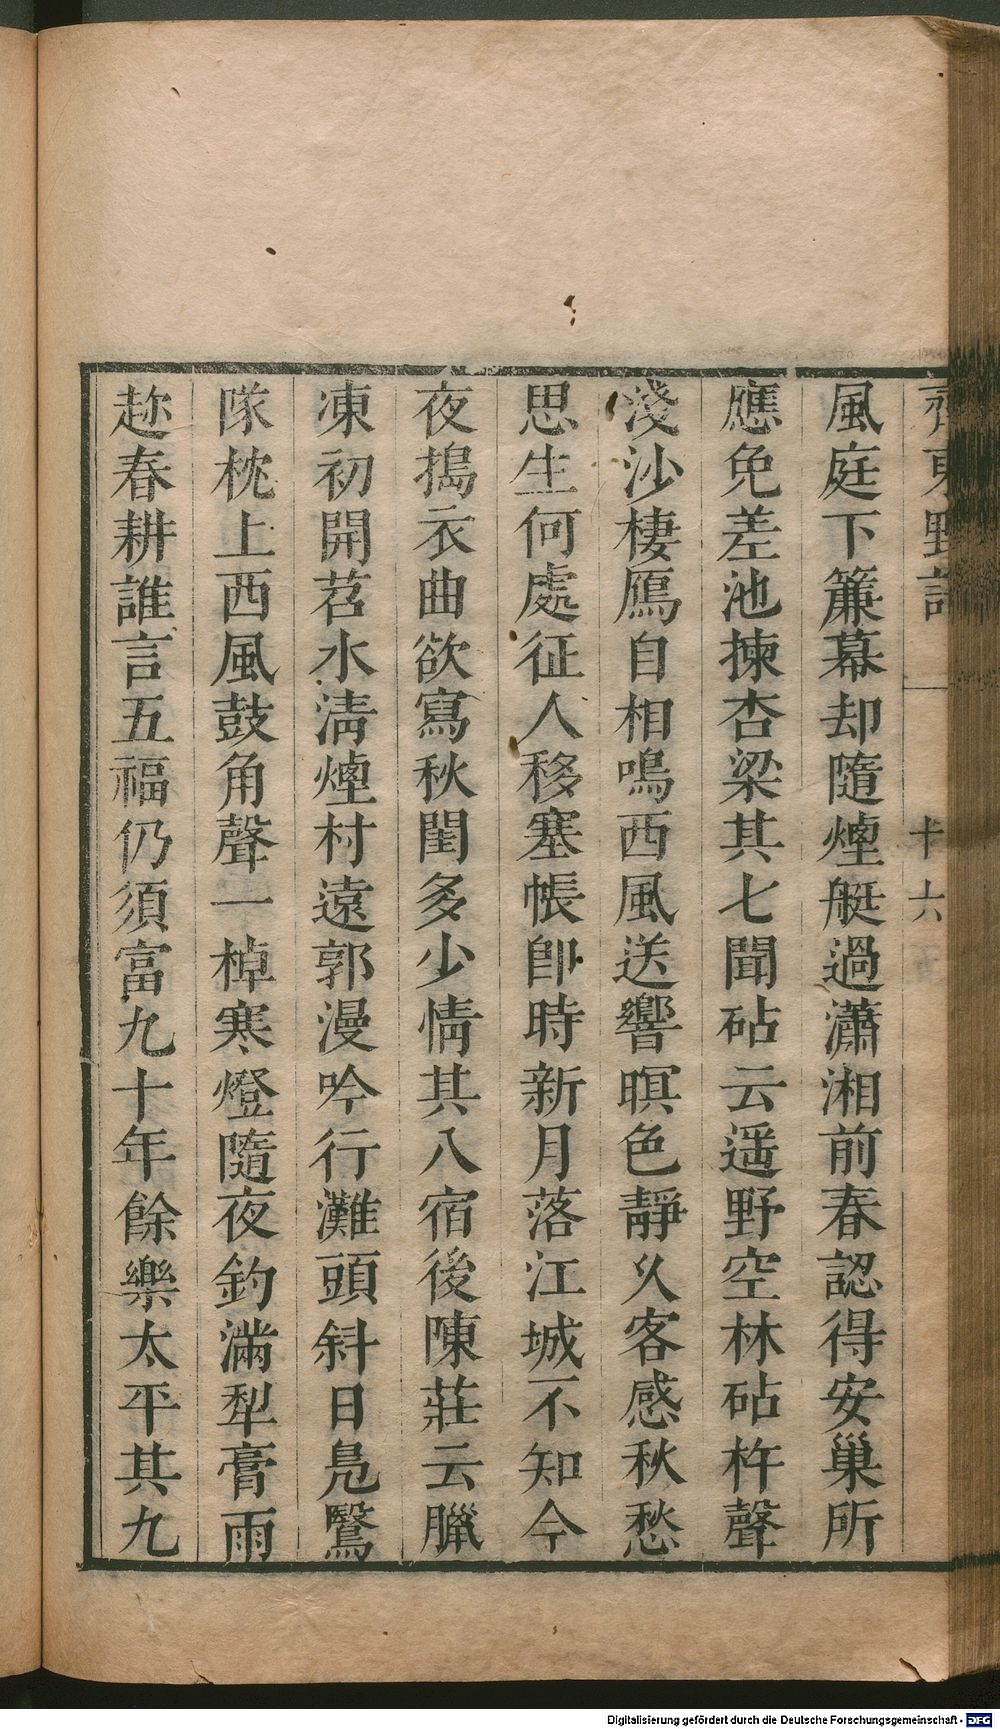 齊東野語 十六
風庭下簾幕却隨煙艇過瀟湘前春認得安巢所
應免差池揀杏梁其七聞砧云遥野空林砧杵聲
淺沙棲鴈自相鳴西風送響暝色靜乆客感秋愁
思生何處征人移塞帳卽時新月落江城不知今
夜搗衣曲欲寫秋閨多少情其八宿後陳莊云臘
凍初開苕水淸煙村遠郭漫吟行灘頭斜日鳧鷖
隊枕上西風鼓角聲一棹寒燈隨夜釣滿犁膏雨
趂春耕誰言五福仍須富九十年餘樂太平其九
Digitalisierung gefördert durch die Deutsche Forschungsgemeinschaft - DFG